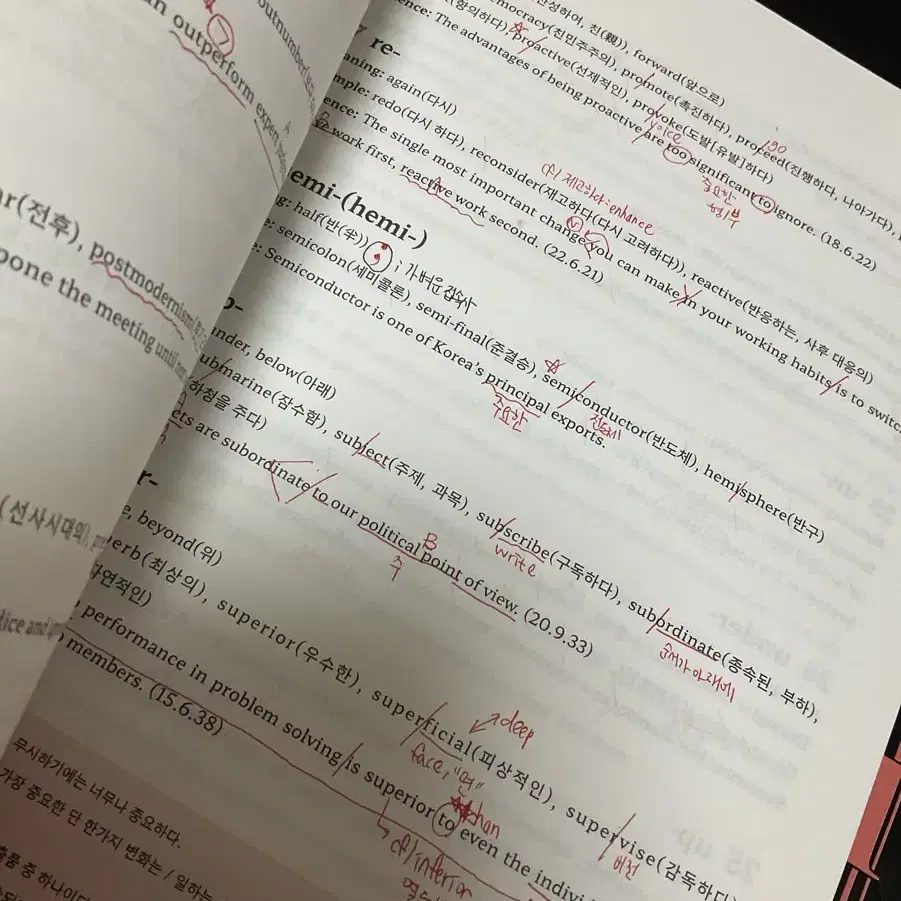 outnumber(
outperform expert
ar(전후), postmodernism(
pone the meeting until
(선사시대의),
찬성하여, 친(親)), forward(앞으로)
mocracy(친민주주의), promote(촉진하다), proceed(진행하다, 나아가다),
go
(항의하다), proactive(선제적인), provoke(도발[유발]하다)
voice
ence: The advantages of being proactive are too significant to ignore. (18.6.22)
중요한
형/부
re-
aning: again(다시)
mple: redo(다시 하다), reconsider(재고하다(다시 고려하다)), reactive(반응하는, 사후 대응의)
제고하다: enhance
ence: The single most important change you can make in your working habits is to switc
work first, reactive work second. (22.6.21)
emi-(hemi-)
g: half(반(半))
; 가벼운 접속사
: semicolon(세미콜론), semi-final(준결승), semiconductor(반도체), hemisphere(반구)
전도체
e: Semiconductor is one of Korea's principal exports.
주요한
nder, below(아래)
submarine(잠수함), subject(주제, 과목), subscribe(구독하다), subordinate(종속된, 부하),
write
순서가 아래에
하청을 주다)
cts are subordinate to our political point of view. (20.9.33)
B
주
r-
e, beyond(위)
erb(최상의), superior(우수한), superficial(피상적인), supervise(감독하다)
deep
face, "면"
버전
자연적인)
performance in problem solving is superior to even the indivi
than
members. (15.6.38)
inferior
무시하기에는 너무나 중요하다.
가장 중요한 단 한가지 변화는 / 일하는
출품 중 하나이다